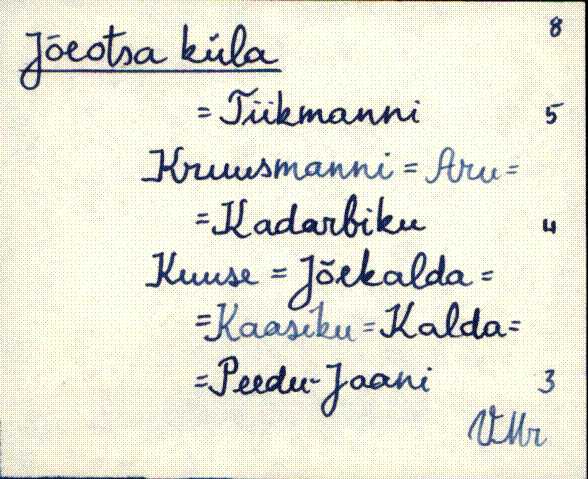 8
Jõeotsa küla
= Tiikmanni 5
Kruusmanni = Aru =
= Kadarbiku 4
Kuuse = Jõekalda =
= Kaasiku = Kalda =
= Peedu-Jaani 3
VMr